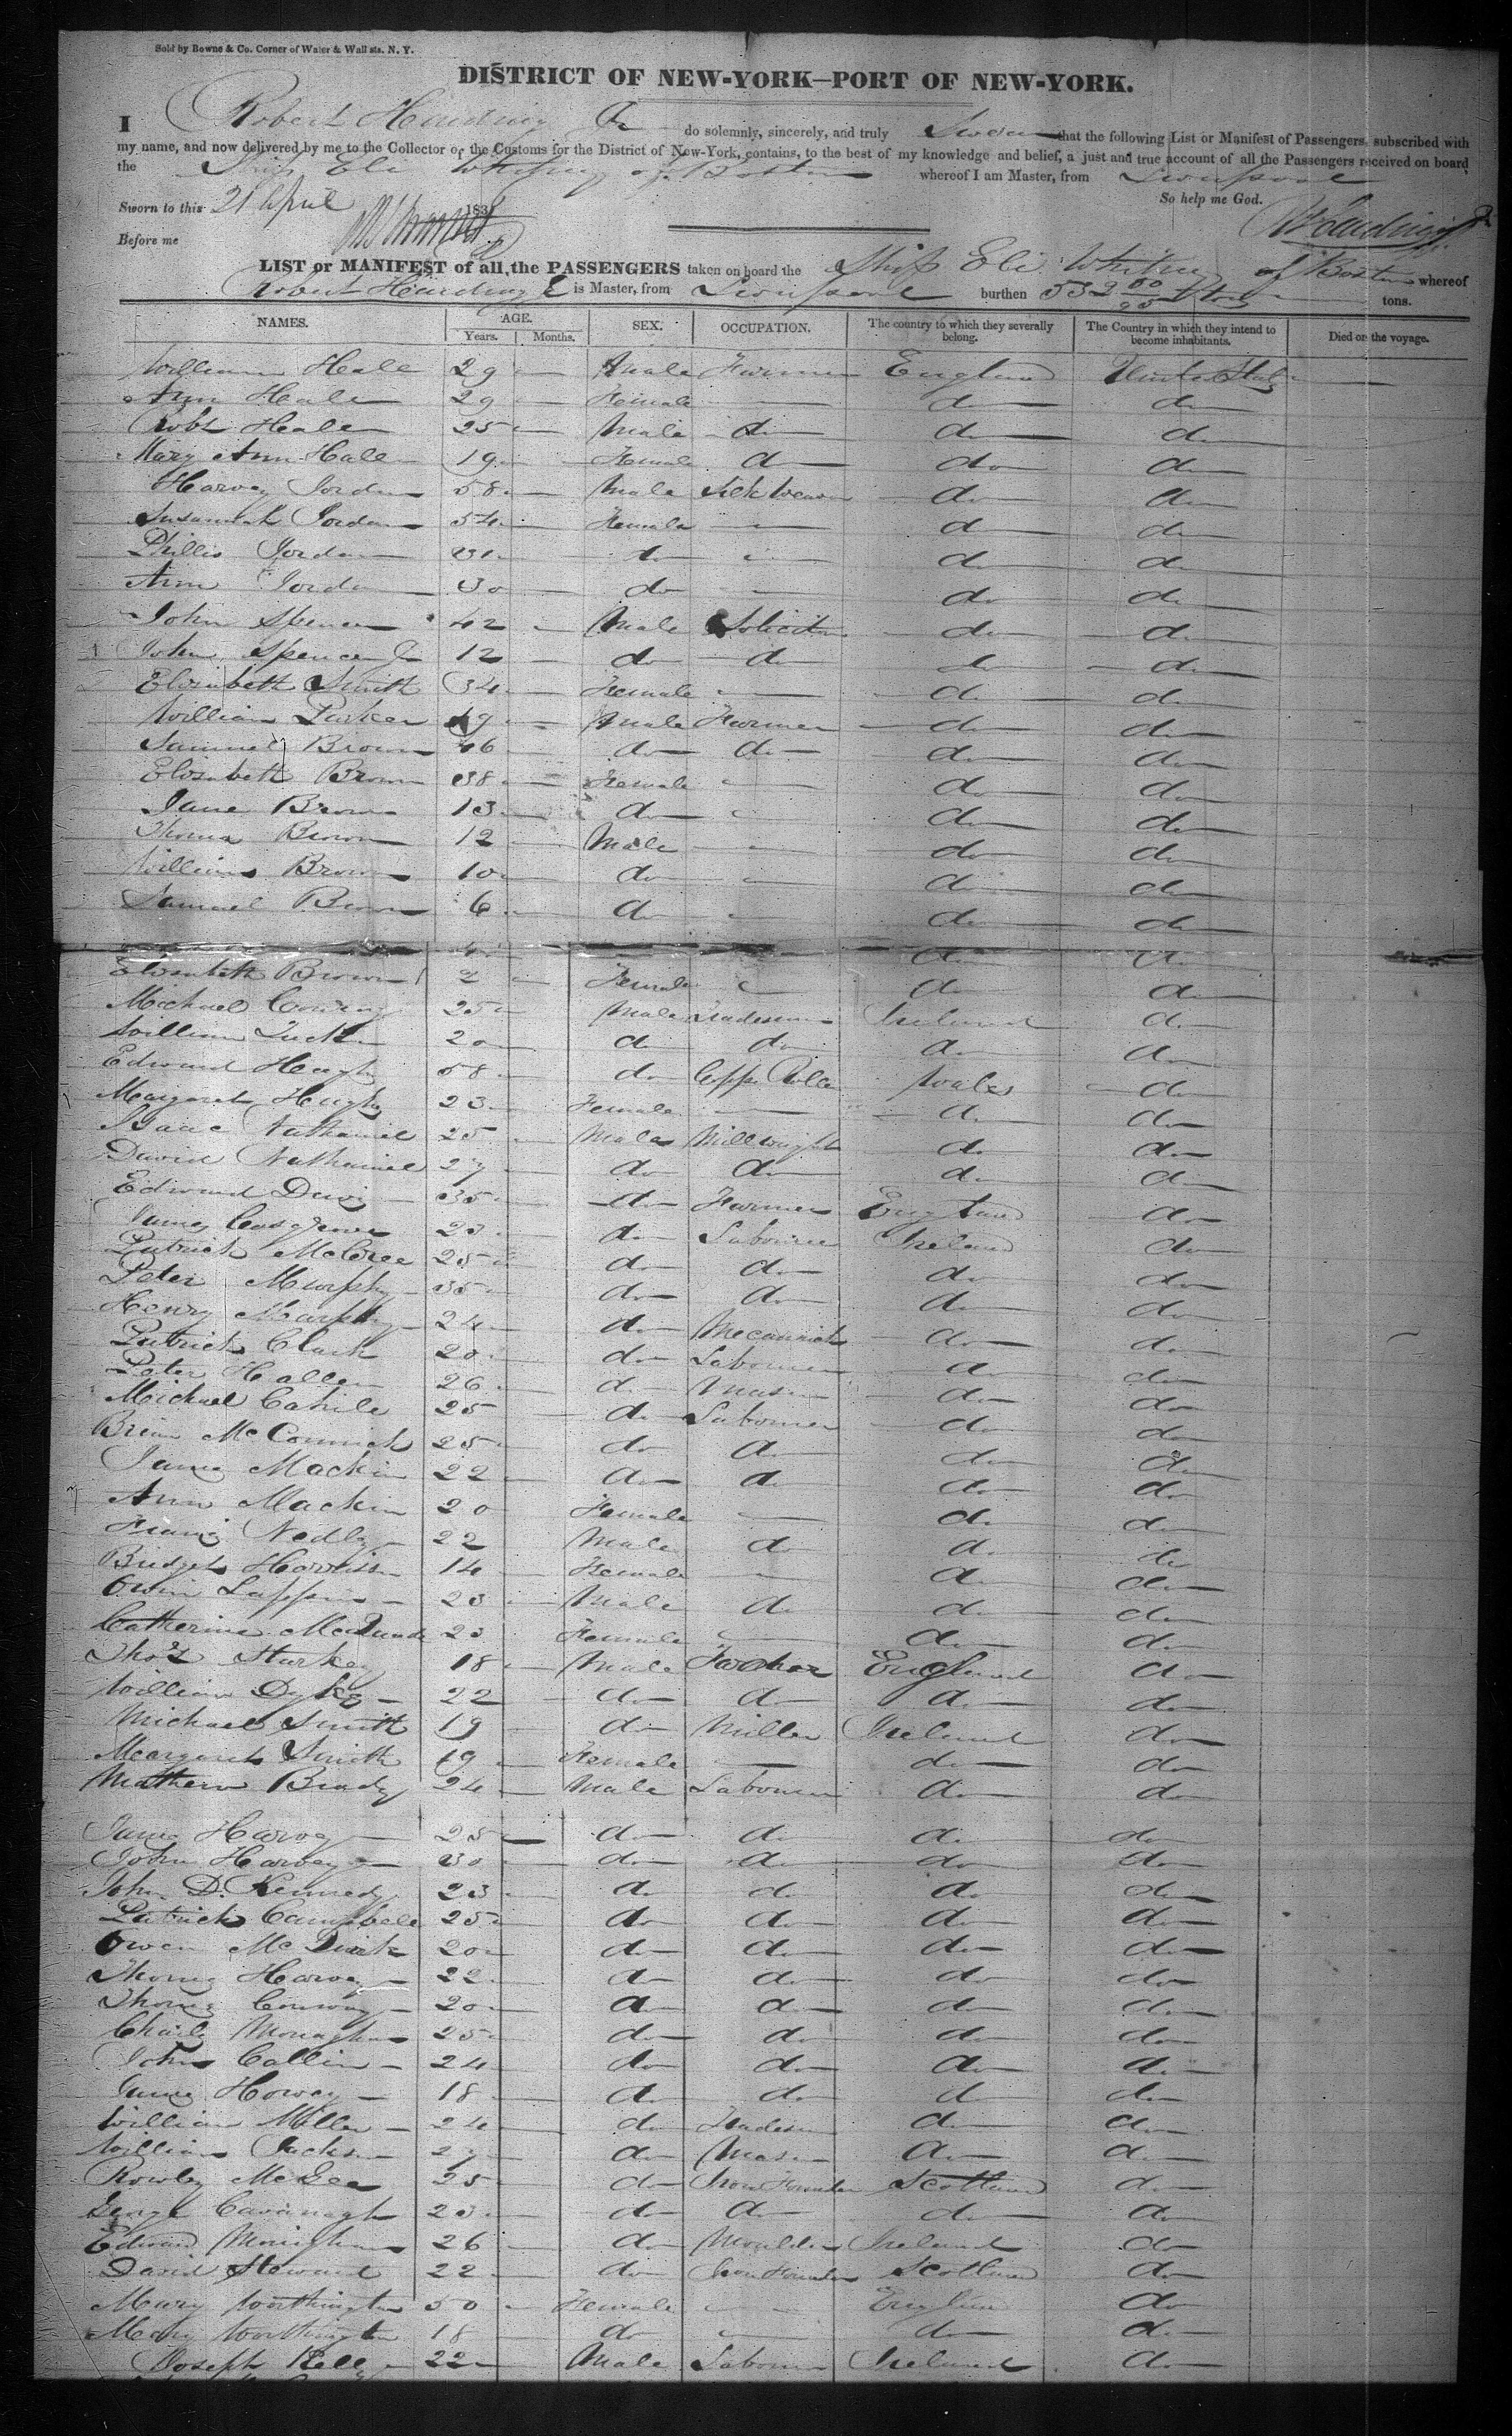 Sold by Bowne & Co. Corner of Water & Wall sts. N. Y.
DISTRICT OF NEW-YORK—PORT OF NEW-YORK.
I Robert Harding Jr do solemnly, sincerely, and truly Swear that the following List or Manifest of Passengers, subscribed with
my name, and now delivered by me to the Collector of the Customs for the District of New-York, contains, to the best of my knowledge and belief, a just and true account of all the Passengers received on board
the Ship Eli Whitney of Boston whereof I am Master, from Liverpool
So help me God.
Sworn to this 21 April 183
Before me
LIST or MANIFEST of all the PASSENGERS taken on board the Ship Eli Whitney of Boston whereof
Robert Harding Jr is Master, from Liverpool burthen 532 tons.
NAMES. AGE. Years. Months. SEX. OCCUPATION. The country to which they severally belong. The Country in which they intend to become inhabitants. Died on the voyage.
William Heale 29 Male Farmer England United States
Ann Heale 29 Female do do
Robt Heale 25 Male do do do
Mary Ann Hale 19 Female do do do
Harvey Jordan 58 Male Silk Weaver do do
Susannah Jordan 54 Female do do
Phillis Jordan 31 do do do
Ann Jordan 30 do do do
John Spencer 42 Male Solicitor do do
John Spencer Jr 12 do do do do
Elizabeth Smith 34 Female do do
William Parker 19 Male Farmer do do
Samuel Brown 46 do do do do
Elizabeth Brown 38 Female do do
Jane Brown 13 do do do
Thomas Brown 12 Male do do
William Brown 10 do do do
Samuel Brown 6 do do do
do do
Elizabeth Brown 2 Female do do
Michael Conway 25 Male Tradesman Ireland do
William 20 do do do do
Edward Hughs 58 do Wales do
Margaret Hughs 23 Female do do
Isaac Nathaniel 25 Male Millwright do do
David Nathaniel 27 do do do do
Edward Davis 35 do Farmer England do
James Cosgrove 23 do Labourer Ireland do
Patrick 25 do do do do
Peter Murphy 35 do do do do
Henry Murphy 24 do Mecannick do do
Patrick Clark 20 do Labourer do do
Peter Hallen 26 do Mason do do
Michael Cahile 25 do Labourer do do
Brian McCormick 25 do do do do
James Mackin 22 do do do do
Ann Mackin 20 Female do do
22 Male do do do
Bridget Harrison 14 Female do do
Owin Lappin 23 Male do do do
Catherine 23 Female do do
Thos Starkey 18 Male England do
William Dykes 22 do do do do
Michael Smith 19 do Miller Ireland do
Margaret Smith 19 Female do do
Mathew Brady 24 Male Labourer do do
James Harvey 25 do do do do
John Harvey 30 do do do do
John D. Kennedy 23 do do do do
Patrick Campbele 25 do do do do
Owen 20 do do do do
Thomas Harvey 22 do do do do
Thomas Conway 20 do do do do
Charly Monaghan 25 do do do do
John Collin 24 do do do do
James Harvey 18 do do do do
William Miller 24 do Tradesm do do
William Jackson 27 do Mason do do
Rowley McGee 25 do Iron Founder Scotland do
George Cavanagh 23 do do do do
Edward Monighan 26 do Moulder Ireland do
David Steward 22 do Iron Founder Scotland do
Mary Worthington 50 Female England do
Mary Worthington 18 do do do
Joseph Kelly 22 Male Labourer Ireland do